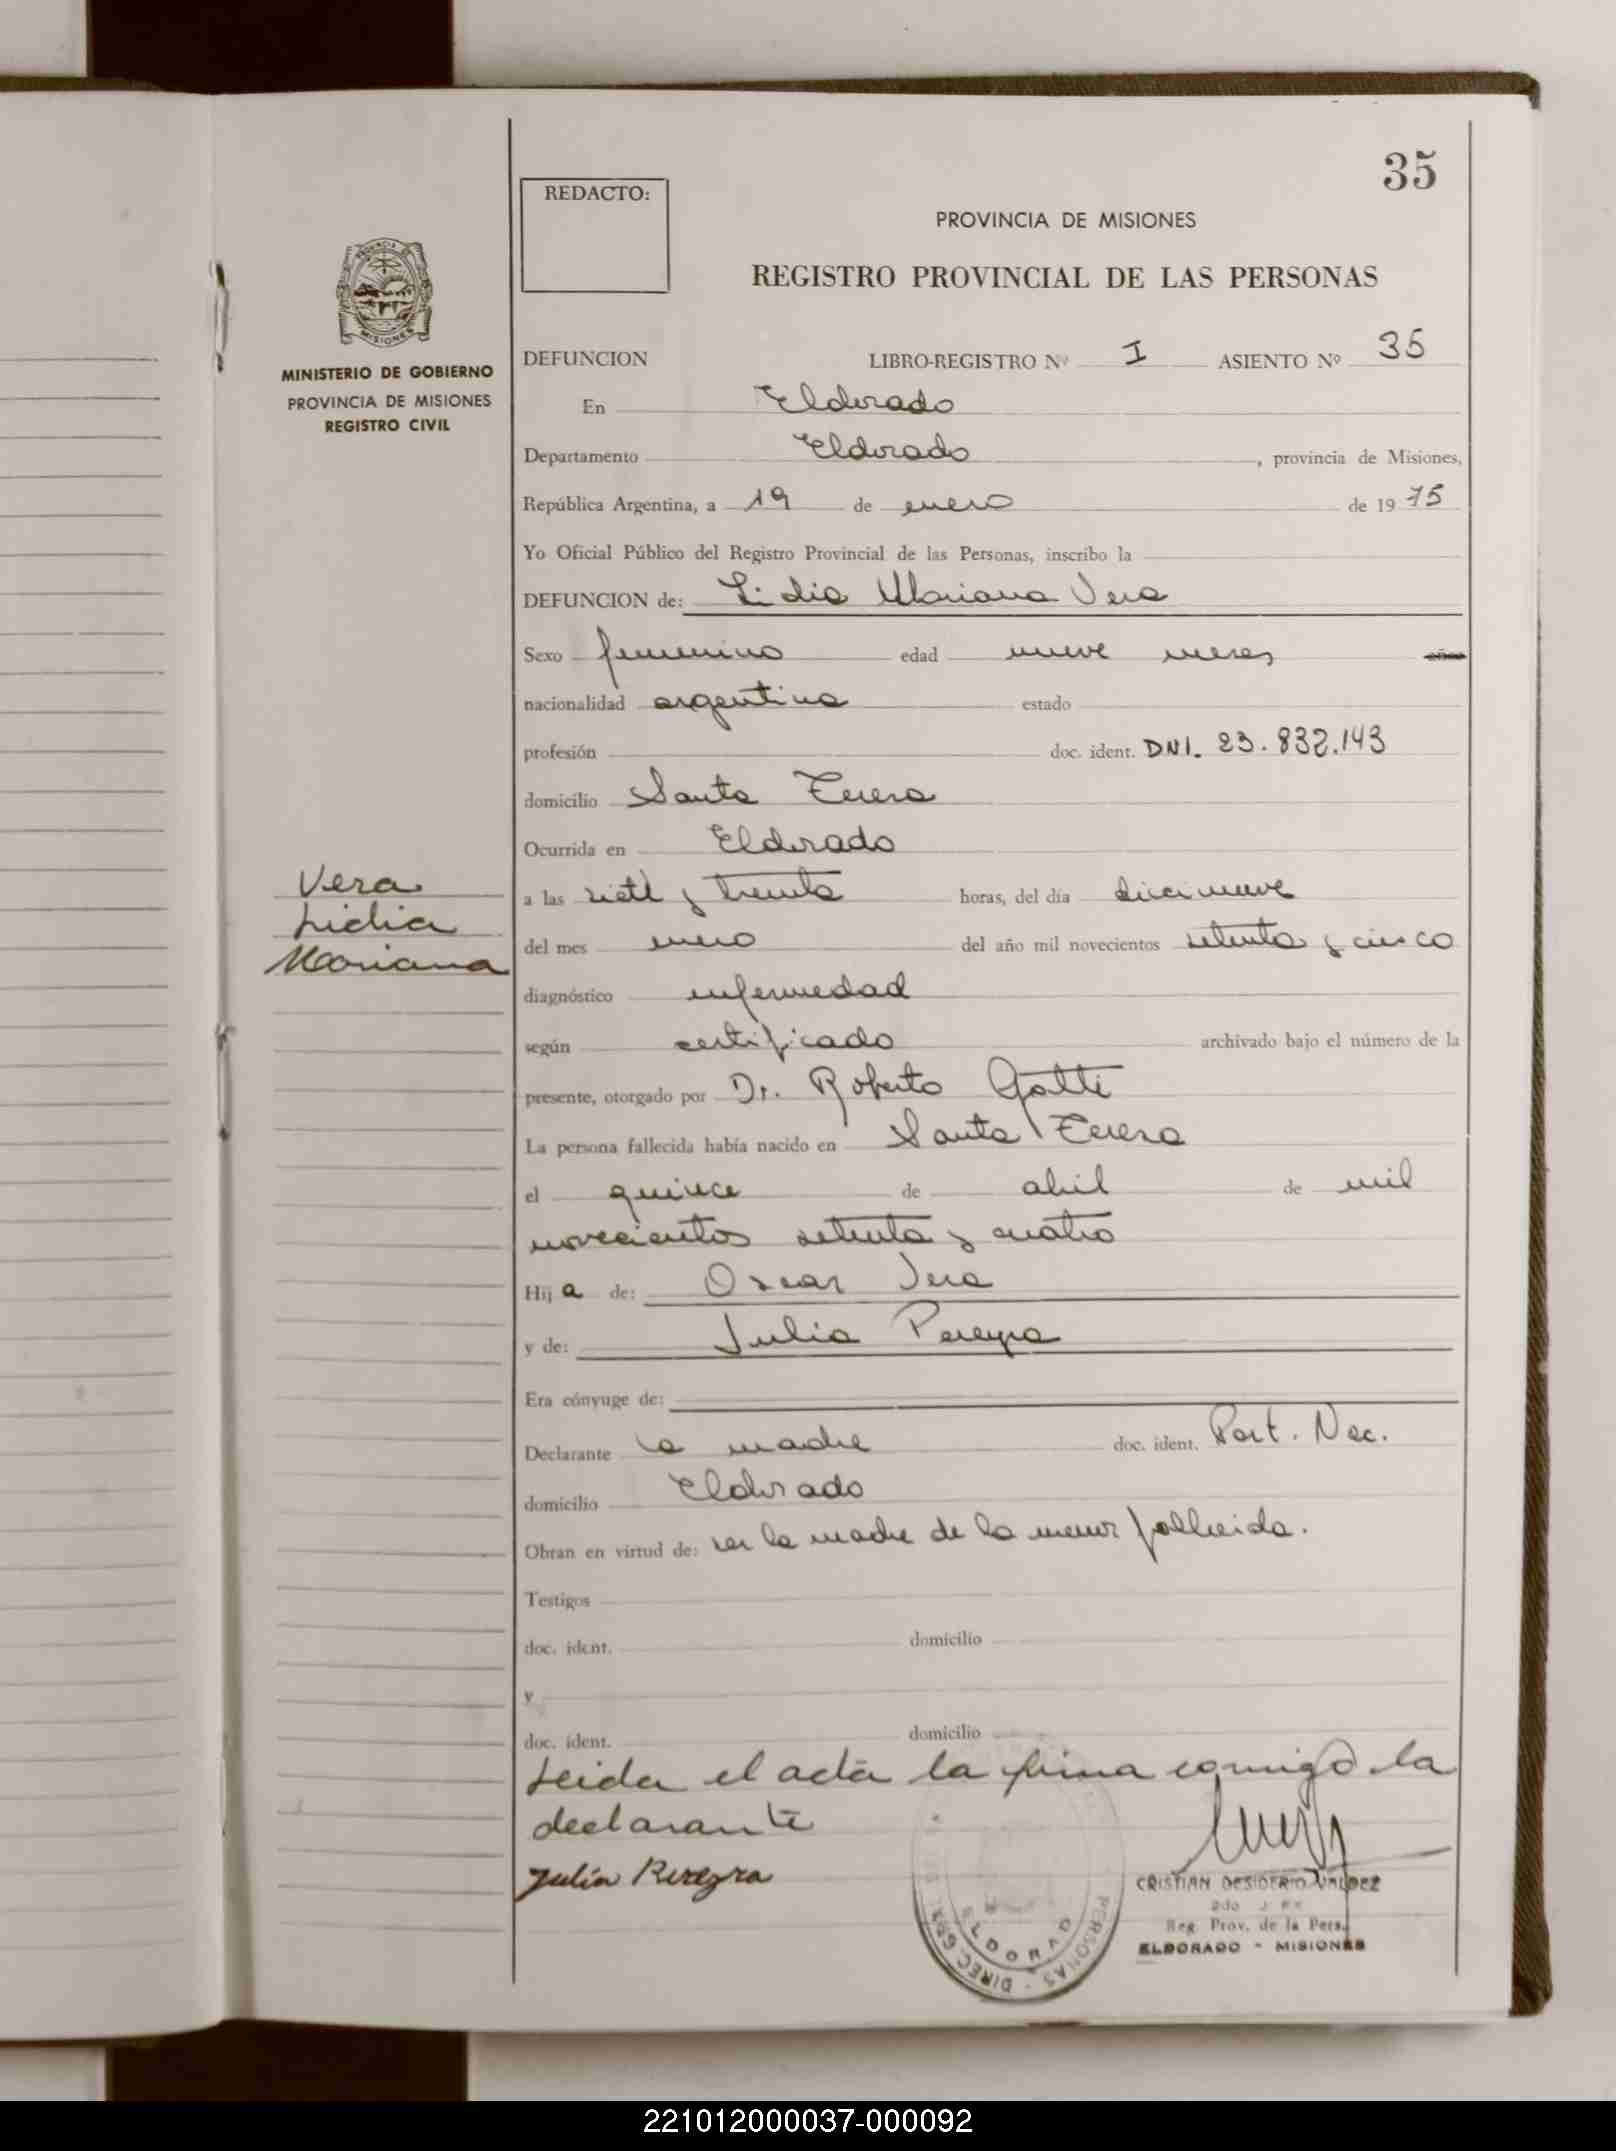 35
REDACTO:
PROVINCIA DE MISIONES
REGISTRO PROVINCIAL DE LAS PERSONAS
MISIONES
MINISTERIO DE GOBIERNO
PROVINCIA DE MISIONES
REGISTRO CIVIL
DEFUNCION LIBRO-REGISTRO Nº I ASIENTO Nº 35
En Eldorado
Departamento Eldorado, provincia de Misiones,
República Argentina, a 19 de enero de 1975
Yo Oficial Público del Registro Provincial de las Personas, inscribo la
DEFUNCION de: Lidia Mariana Vera
Sexo femenino edad nueve meses años
nacionalidad argentina estado
profesión doc. ident. DNI. 23.832.143
domicilio Santa Teresa
Ocurrida en Eldorado
Vera
Lidia
Mariana
a las siete y treinta horas, del día diecinueve
del mes enero del año mil novecientos setenta y cinco
diagnóstico enfermedad
según certificado archivado bajo el número de la
presente, otorgado por Dr. Roberto Gatti
La persona fallecida había nacido en Santa Teresa
el quince de abril de mil
novecientos setenta y cuatro
Hija de: Oscar Vera
y de: Julia Pereyra
Era cónyuge de:
Declarante la madre doc. ident. Part. Nac.
domicilio Eldorado
Obran en virtud de: ser la madre de la menor fallecida.
Testigos
doc. ident. domicilio
y
doc. ident. domicilio
Leida el acta la firma conmigo la
declarante
Julia Pereyra
CRISTIAN DESIDERIO VALDEZ
Reg. Prov. de la Pers.
ELDORADO - MISIONES
PERSONAS - DIREC. GRAL.
ELDORADO
221012000037-000092